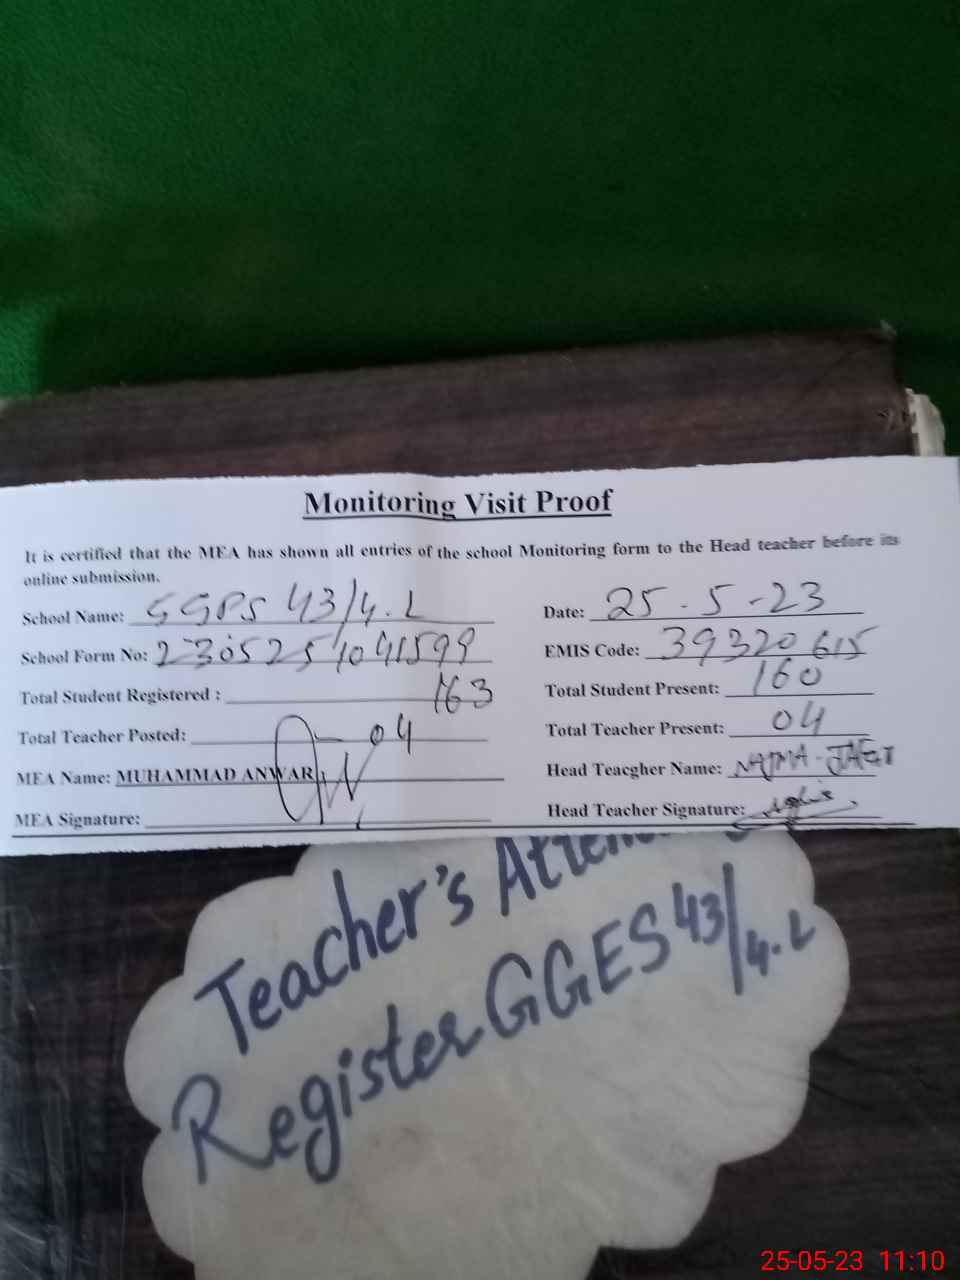 Monitoring Visit Proof
It is certified that the MEA has shown all entries of the school Monitoring form to the Head teacher before its
online submission.
School Name: GGPS 43/4.L Date: 25-5-23
School Form No: 2305251041599 EMIS Code: 39320615
Total Student Registered : 163 Total Student Present: 160
Total Teacher Posted: 04 Total Teacher Present: 04
MEA Name: MUHAMMAD ANWAR Head Teacgher Name: NAJMA
MEA Signature: Head Teacher Signature:
Teacher's
Register GGES 43/4.L
25-05-23 11:10